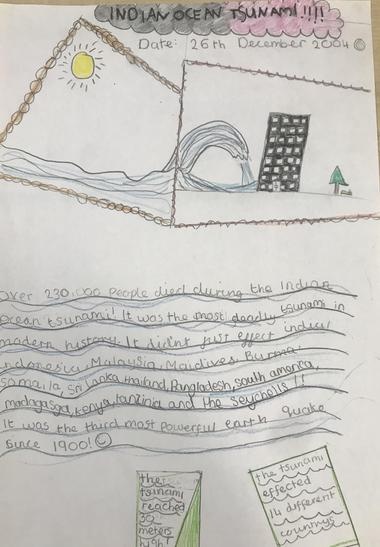 INDIAN OCEAN TSUNAMI!!!!
Date: 26th December 2004
Over 230,000 people died during the Indian
ocean tsunami! It was the most deadly tsunami in
modern history. It didn't just effect india
indonesia, Malaysia, Maldives, Burma
somaila, sri Lanka, thailand, Bangladesh, south america,
madagasga, kenya, tanzinia and the seychells!!
It was the third most powerful earth quake
Since 1900!
the
tsunami
reached
30
meters
high!
the tsunami
effected
14 different
countnys